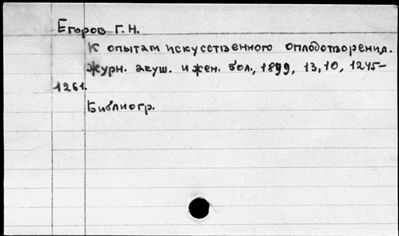 Егоров Г. Н.
К опытам искусственного оплодотворения.
журн. акуш. и жен. бол., 1899, 13, 10, 1245-
1261.
Библиогр.